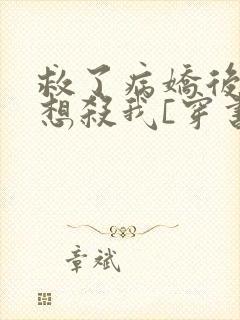 救了病嬌後
想殺我[穿書
章斌